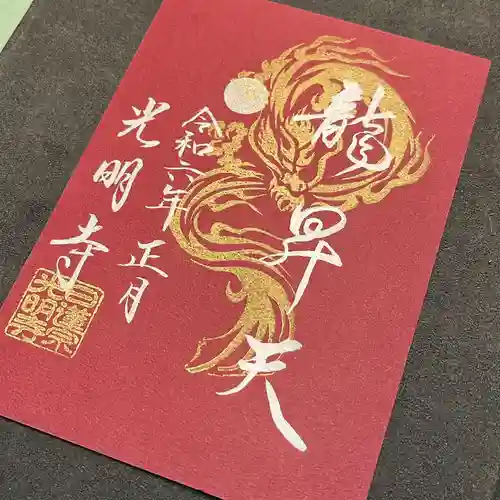 龍昇天
令和六年 正月
光明寺
日蓮宗
光明寺